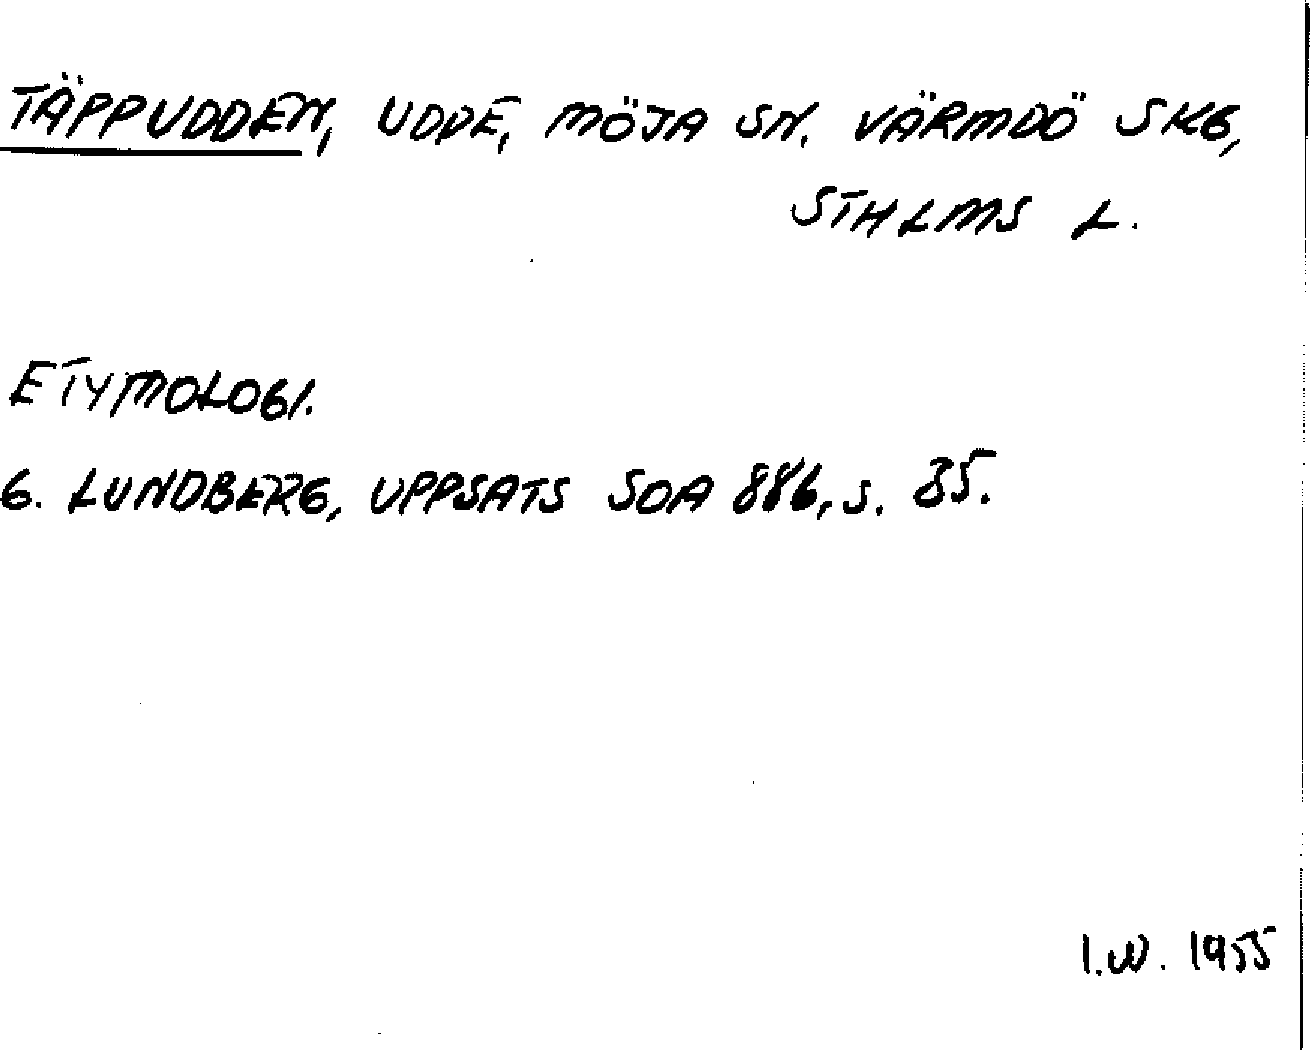 TÄPPUDDEN, UDDE, MÖJA SN. VÄRMDÖ SKG,
STHLMS L.
ETYMOLOGI.
G. LUNDBERG, UPPSATS SOA 886, S. 35.
I.W. 1955